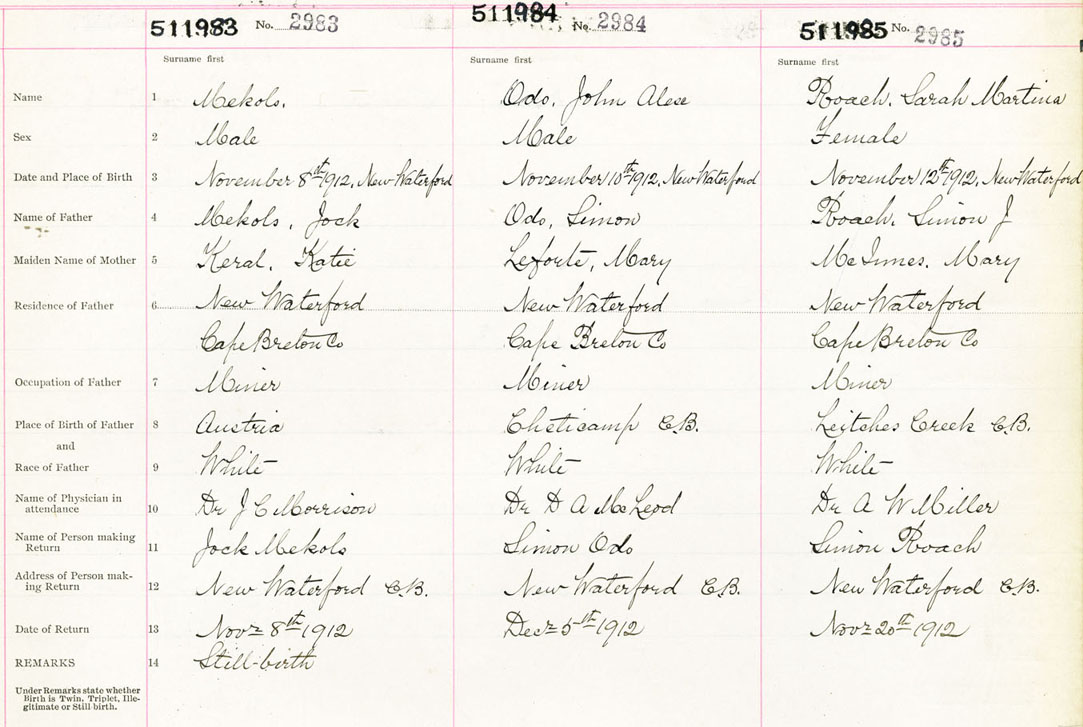 511983 No. 2983 511984 No. 2984 511985 No. 2985
Surname first Surname first Surname first
Name 1 Mekols. Odo, John Alex Roach, Sarah Martina
Sex 2 Male Male Female
Date and Place of Birth 3 November 8th 1912, New Waterford November 10th 1912, New Waterford November 12th 1912, New Waterford
Name of Father 4 Mekols, Jock Odo, Simon Roach, Simon J
Maiden Name of Mother 5 Keral, Katie Leforte, Mary McInnes, Mary
Residence of Father 6 New Waterford New Waterford New Waterford
Cape Breton Co Cape Breton Co Cape Breton Co
Occupation of Father 7 Miner Miner Miner
Place of Birth of Father 8 Austria Cheticamp C.B. Leitches Creek C.B.
and
Race of Father 9 White White White
Name of Physician in
attendance 10 Dr J C Morrison Dr D A McLeod Dr A W Miller
Name of Person making
Return 11 Jock Mekols Simon Odo Simon Roach
Address of Person mak-
ing Return 12 New Waterford C.B. New Waterford C.B. New Waterford C.B.
Date of Return 13 Novr 8th 1912 Decr 5th 1912 Novr 20th 1912
REMARKS 14 Still-birth
Under Remarks state whether
Birth is Twin. Triplet, Ille-
gitimate or Still birth.